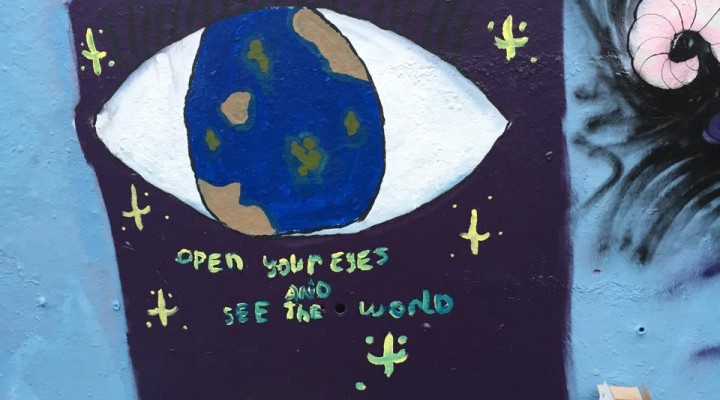 OPEN YOUR EYES
AND
SEE THE WORLD